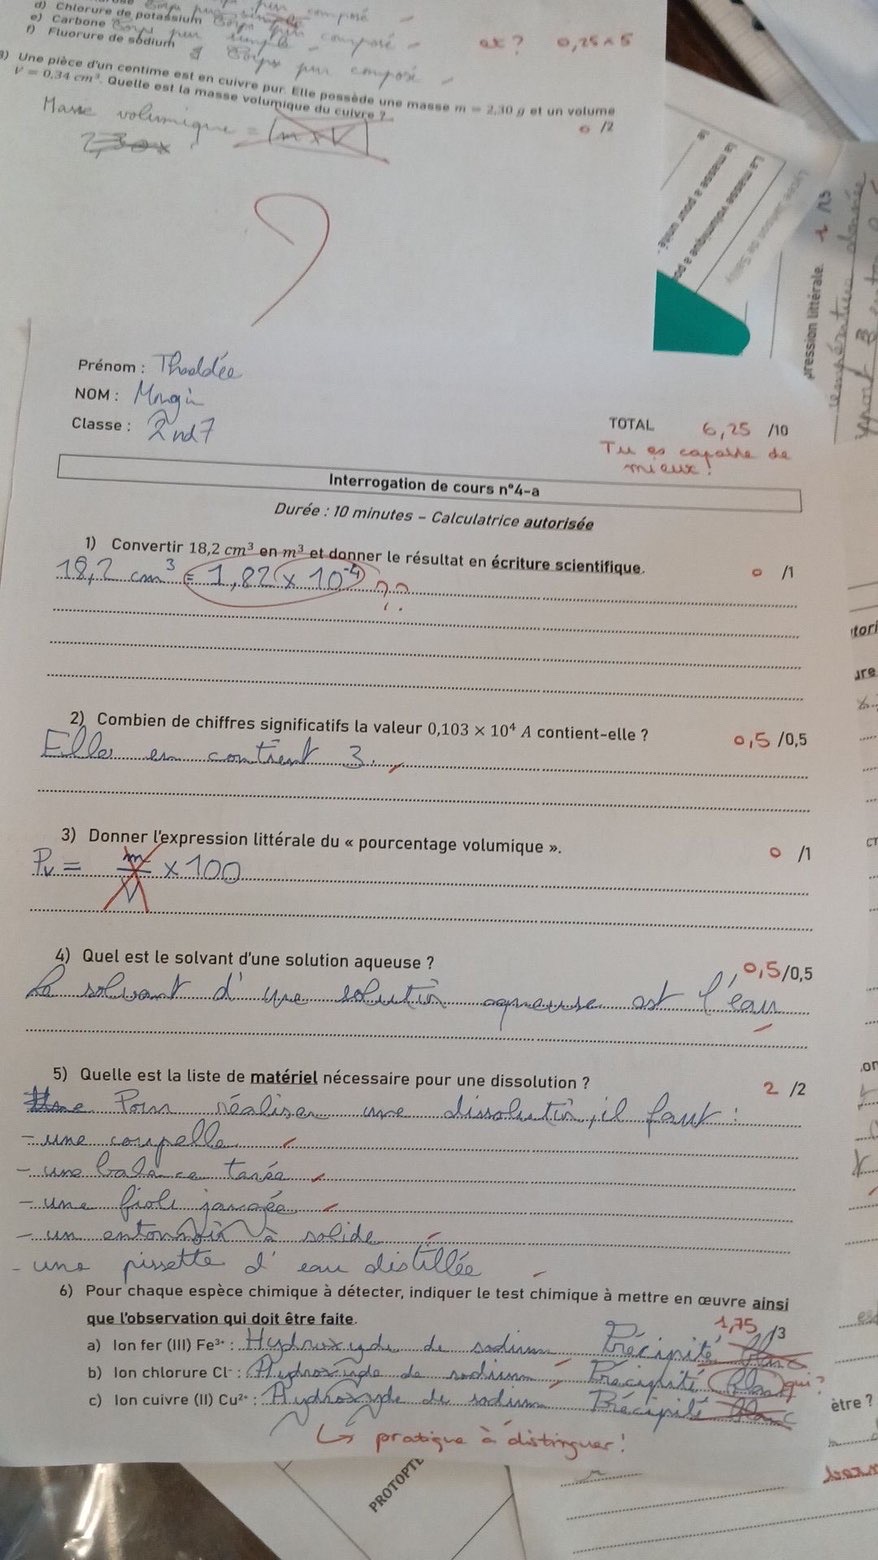 d) Chlorure de potassium
e) Carbone Corps pur simple
f) Fluorure de sodium Corps pur composé
ex? 0,25 × 5
3) Une pièce d'un centime est en cuivre pur. Elle possède une masse m = 2,30 g et un volume
V = 0,34 cm³. Quelle est la masse volumique du cuivre ?
0 /2
Masse volumique = m × V
Prénom : Thaddée
NOM : Mongin
Classe : 2nd 7
TOTAL 6,25 /10
Tu es capable de
mieux !
Interrogation de cours n°4-a
Durée : 10 minutes – Calculatrice autorisée
1) Convertir 18,2 cm³ en m³ et donner le résultat en écriture scientifique.
0 /1
18,2 cm³ = 1,82 × 10⁻⁴ ??
2) Combien de chiffres significatifs la valeur 0,103 × 10⁴ A contient-elle ?
0,5 /0,5
Elle en contient 3.
3) Donner l'expression littérale du « pourcentage volumique ».
0 /1
Pv = m/V × 100
4) Quel est le solvant d'une solution aqueuse ?
0,5 /0,5
Le solvant d'une solution aqueuse est l'eau
5) Quelle est la liste de matériel nécessaire pour une dissolution ?
2 /2
Pour réaliser une dissolution, il faut :
- une coupelle
- une balance tarée
- une fiole jaugée
- un entonnoir à solide
- une pissette d'eau distillée
6) Pour chaque espèce chimique à détecter, indiquer le test chimique à mettre en œuvre ainsi
que l'observation qui doit être faite.
1,75 /3
a) Ion fer (III) Fe³⁺ : Hydroxyde de sodium Précipité blanc
b) Ion chlorure Cl⁻ : Hydroxyde de sodium Précipité blanc qui?
c) Ion cuivre (II) Cu²⁺ : Hydroxyde de sodium Précipité blanc
↳ pratique à distinguer !
pression littérale.
être ?
PROTOPTE